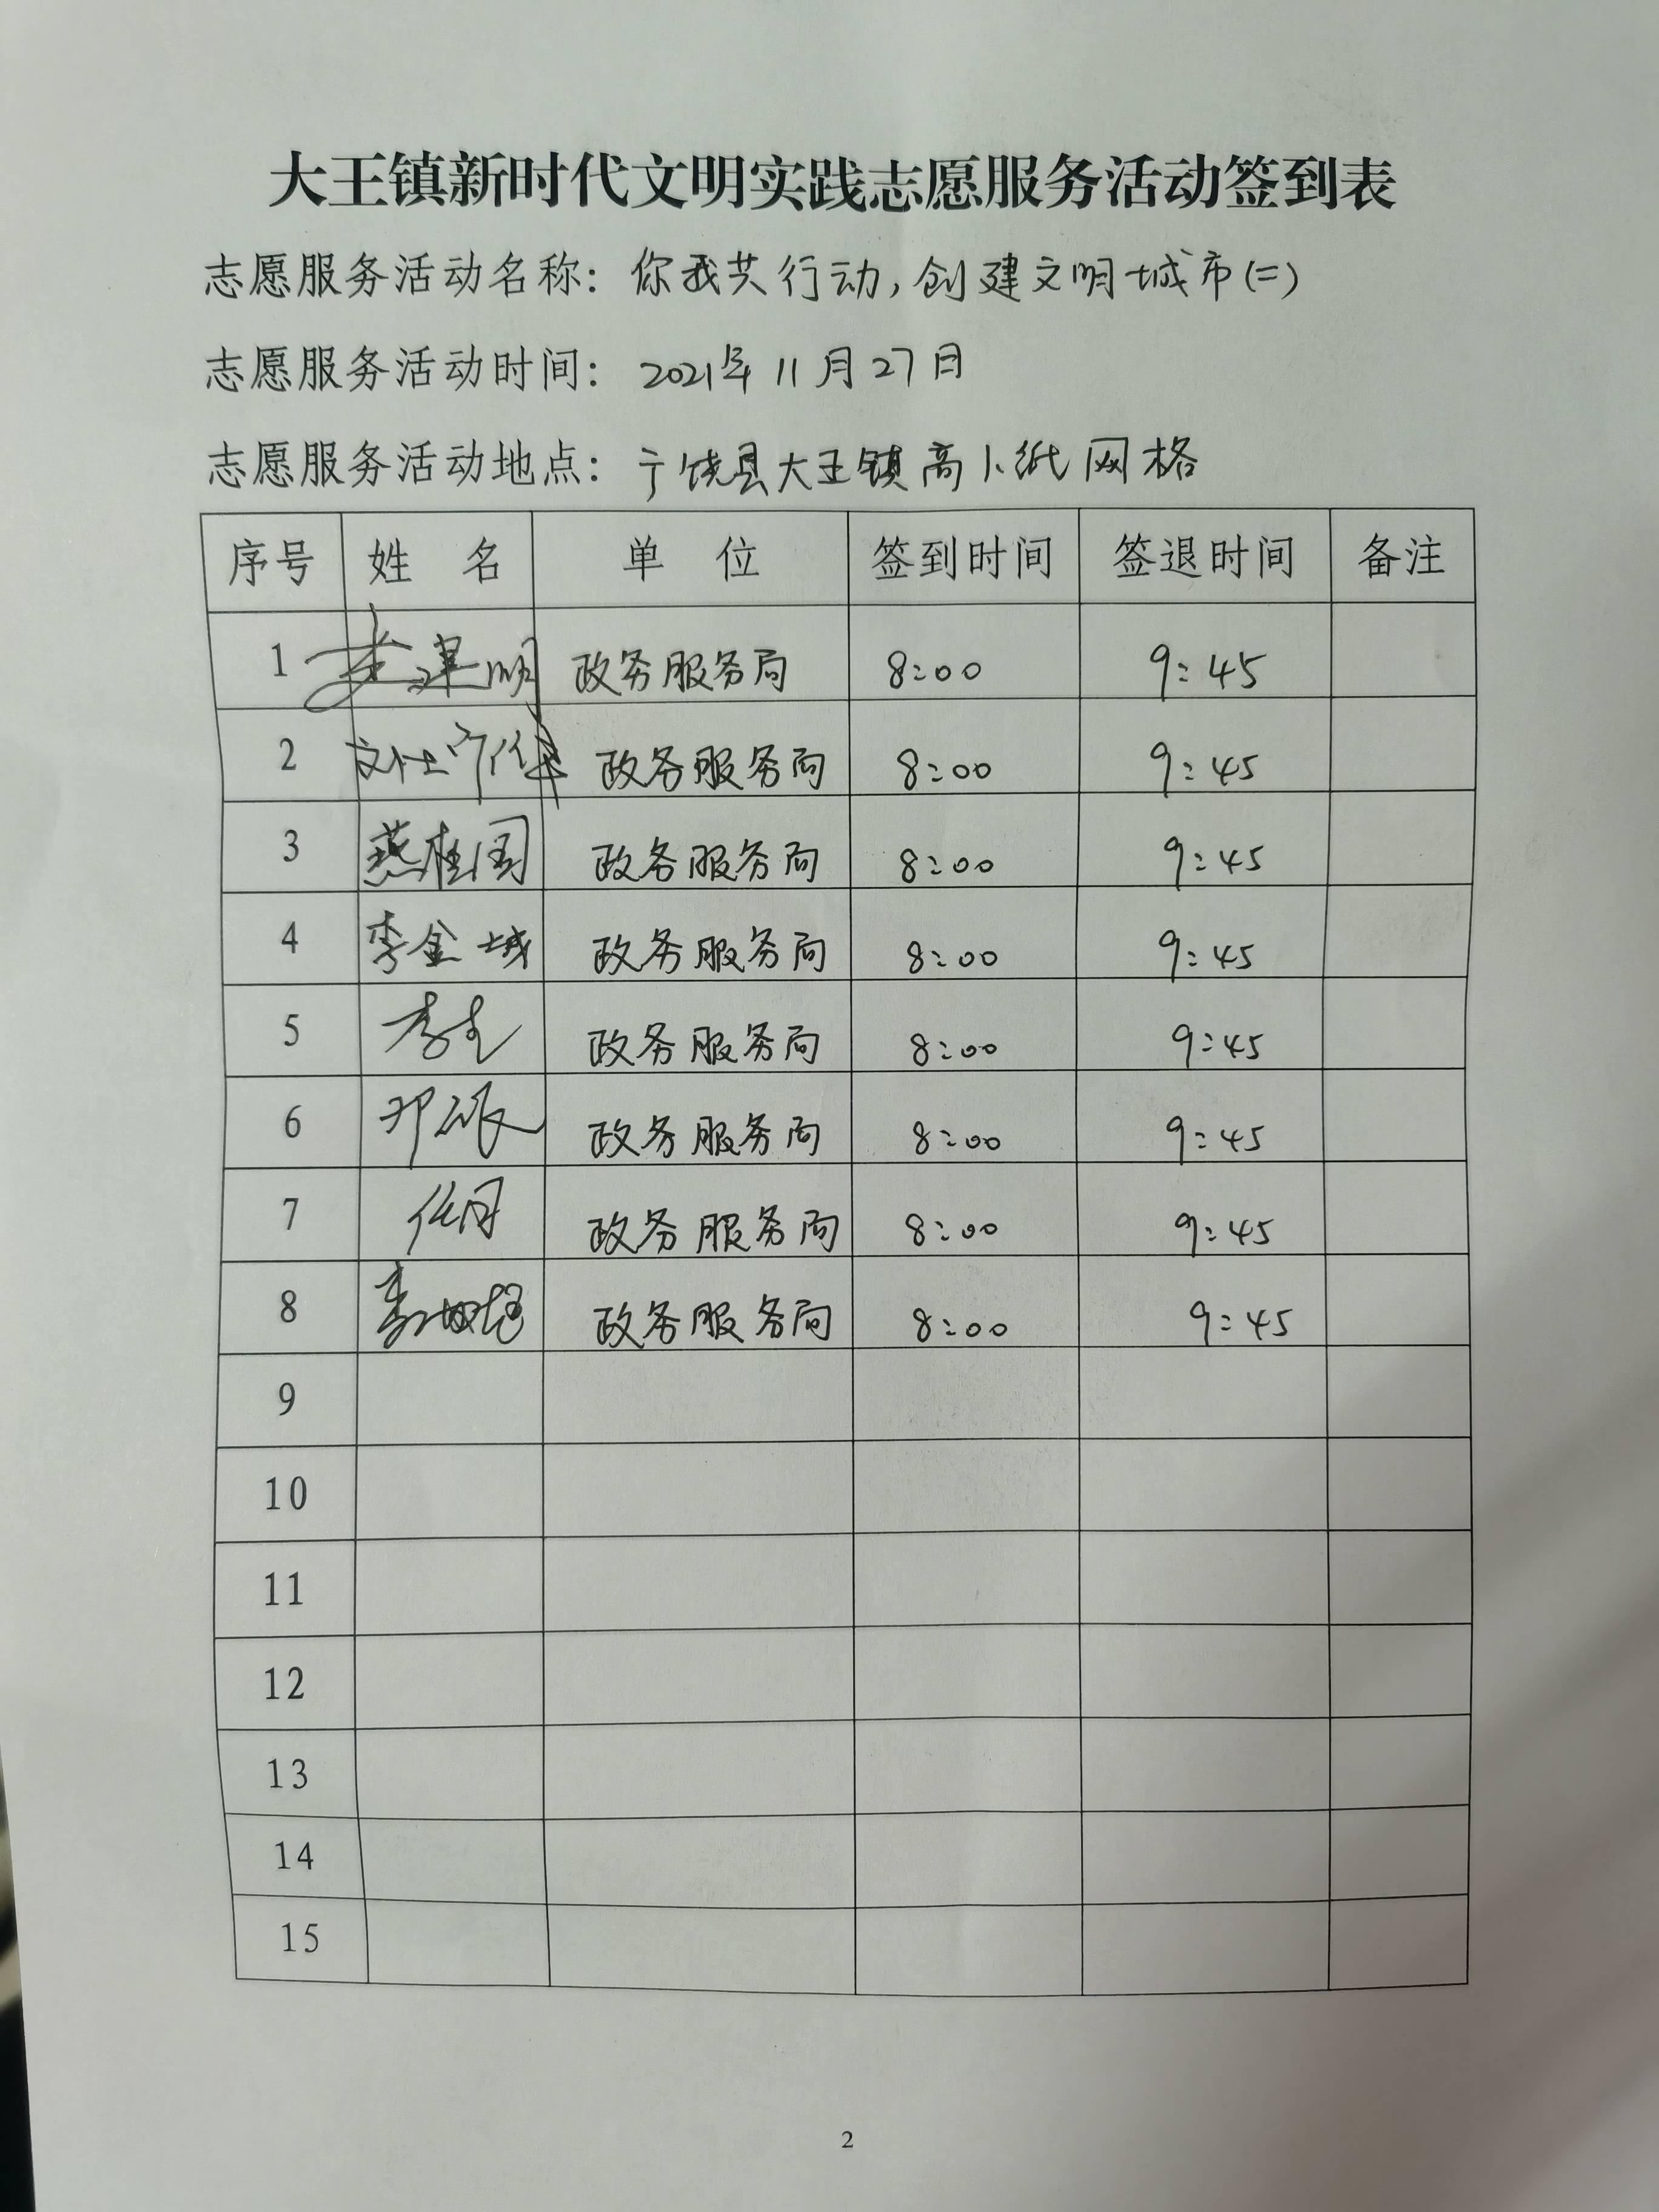 大王镇新时代文明实践志愿服务活动签到表
志愿服务活动名称：你我共行动，创建文明城市(二)
志愿服务活动时间：2021年11月27日
志愿服务活动地点：广饶县大王镇高小纸网格
序号 姓 名 单 位 签到时间 签退时间 备注
1 建明 政务服务局 8:00 9:45
2 政务服务局 8:00 9:45
3 燕桂国 政务服务局 8:00 9:45
4 李金城 政务服务局 8:00 9:45
5 李 政务服务局 8:00 9:45
6 政务服务局 8:00 9:45
7 政务服务局 8:00 9:45
8 政务服务局 8:00 9:45
9
10
11
12
13
14
15
2